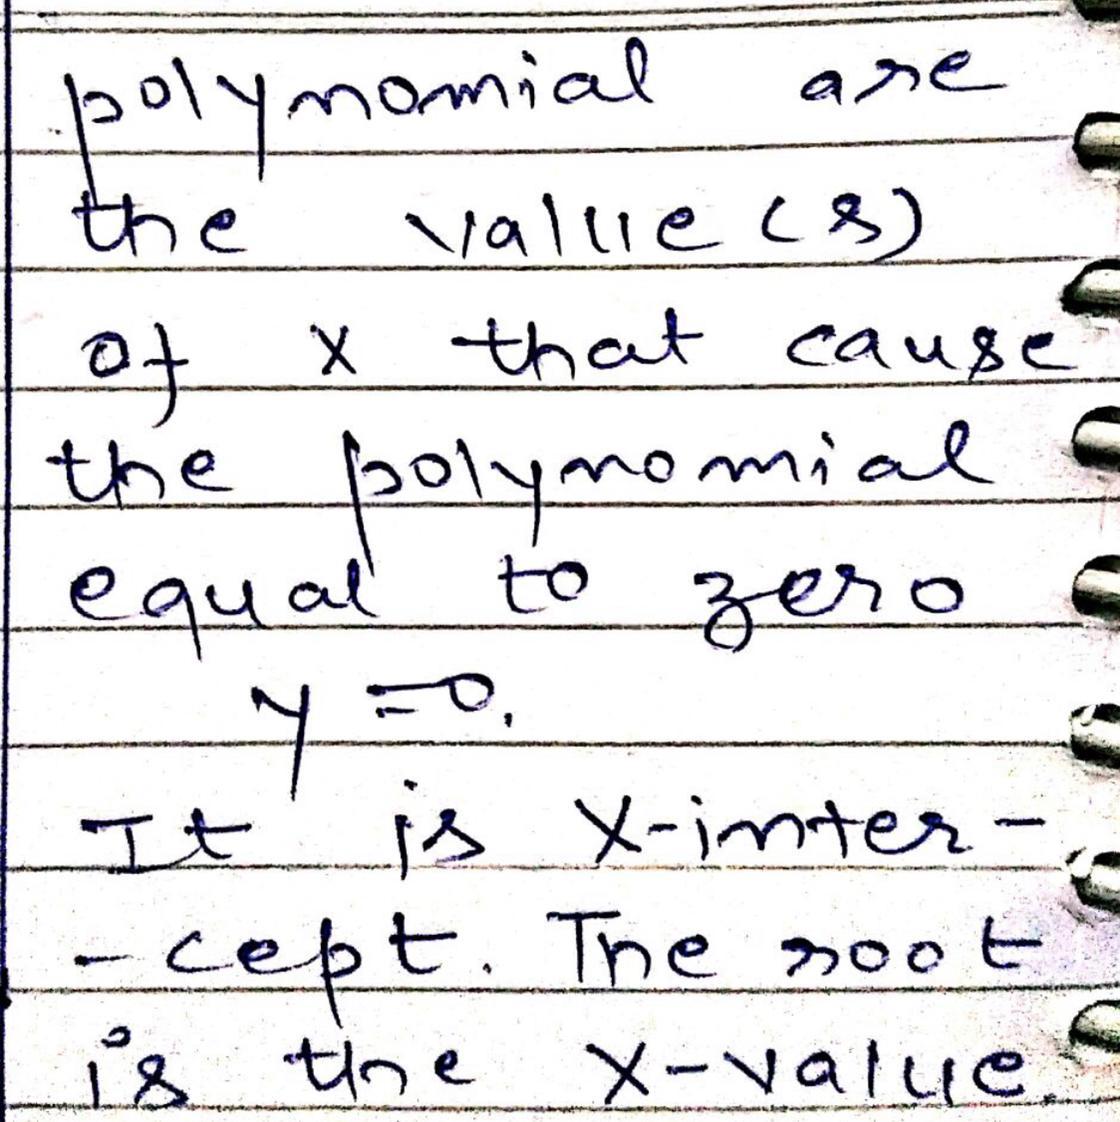 polynomial are
the value (s)
of x that cause
the polynomial
equal to zero
y = 0.
It is X-inter-
- cept. The root
is the x-value.